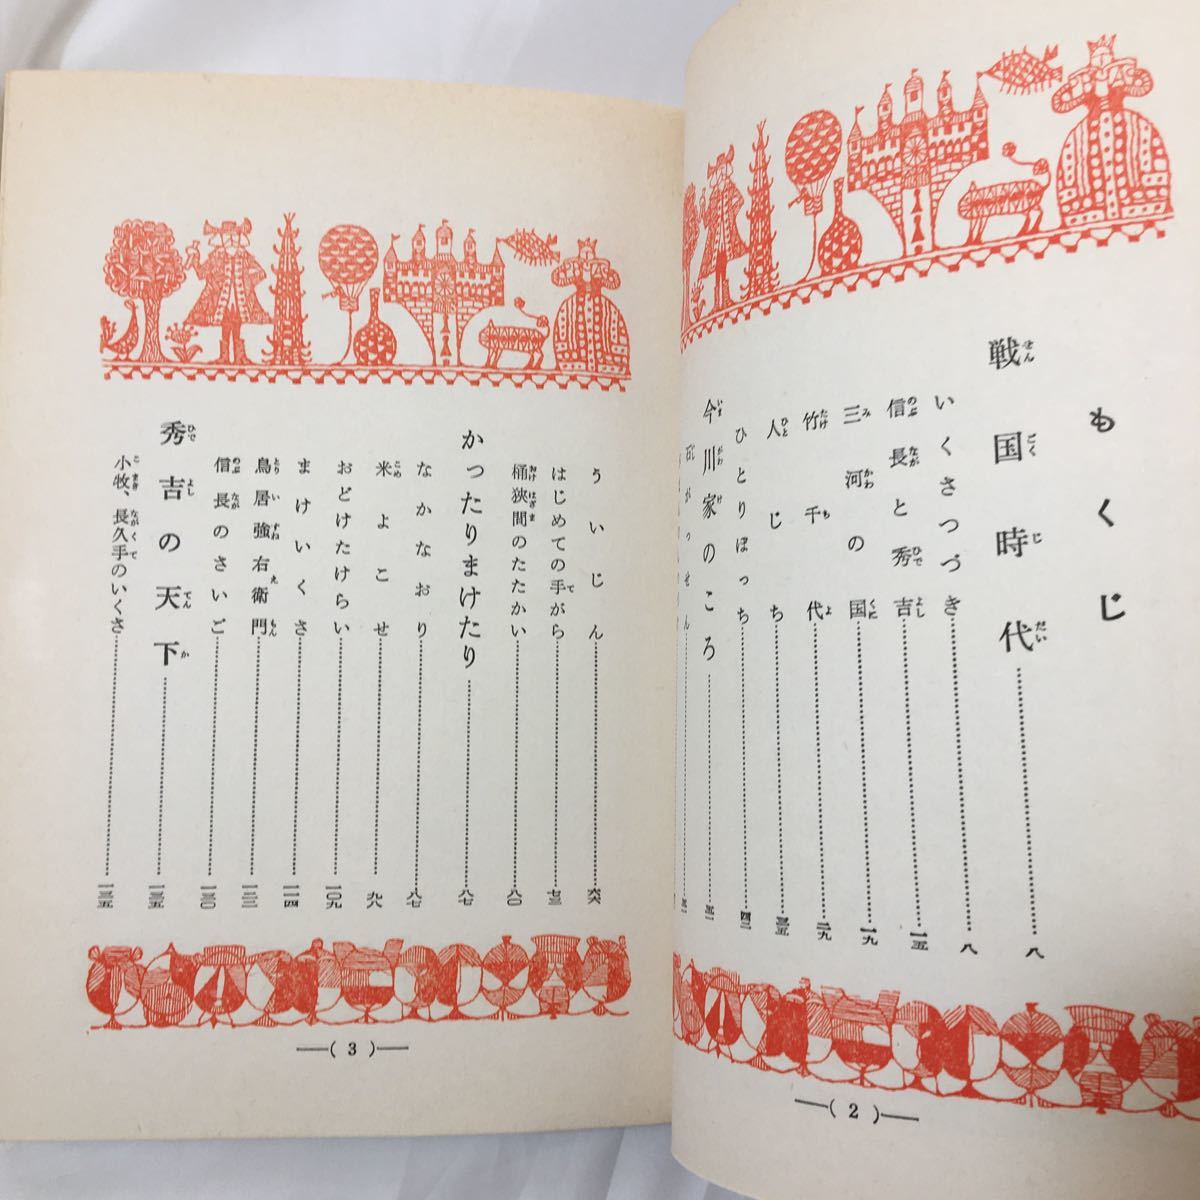 もくじ
戦国時代 八
いくさつづき 八
信長と秀吉 一五
三河の国 一九
竹千代 二九
人じち 三五
ひとりぼっち 四二
今川家のころ 五一
石がっせん 五一
( 2 )
ういじん 六六
はじめての手がら 七三
桶狭間のたたかい 八〇
かったりまけたり 八七
なかなおり 八七
米よこせ 九六
おどけたけらい 一〇九
まけいくさ 一一四
鳥居強右衛門 一二二
信長のさいご 一三〇
秀吉の天下 一三五
小牧、長久手のいくさ 一三五
( 3 )